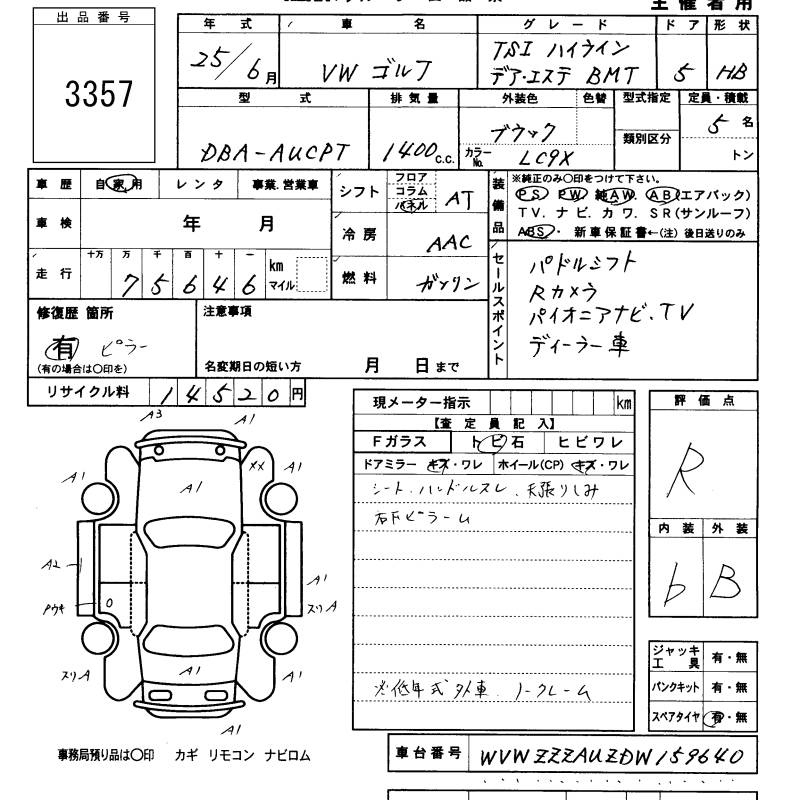 主催者用
出品番号
3357
年式 車名 グレード ドア 形状
25/6月 VW ゴルフ TSI ハイライン デア・エステ BMT 5 HB
型式 排気量 外装色 色替 型式指定 定員・積載
類別区分
DBA-AUCPT 1400c.c. ブラック カラーNo. LC9X 5名
トン
車歴 自家用 レンタ 事業.営業車
シフト フロア コラム パネル AT
車検 年 月
冷房 AAC
走行 十万 万 千 百 十 一
75646 km マイル
燃料 ガソリン
装備品 ※純正のみ○印をつけて下さい。
PS PW 純AW. AB(エアバック)
TV. ナビ. カワ. SR(サンルーフ)
ABS. 新車保証書←(注) 後日送りのみ
セールスポイント
パドルシフト
Rカメラ
パイオニアナビ.TV
ディーラー車
修復歴 箇所
有 ピラー
(有の場合は○印を)
注意事項
名変期日の短い方 月 日まで
リサイクル料 14520円
現メーター指示 km
【査定員記入】
Fガラス トビ石 ヒビワレ
ドアミラー キズ・ワレ ホイール(CP) キズ・ワレ
シート.ハンドルスレ.天張りしみ
右Fピラーム
※低年式外車.ノークレーム
評価点
R
内装 外装
b B
ジャッキ工具 有・無
パンクキット 有・無
スペアタイヤ 有・無
A3 A1
A1 XX A1
A1
A2 A1
Pウキ スリA
スリA A1 A1
A1
事務局預り品は○印 カギ リモコン ナビロム
車台番号 WVWZZZAUZDW159640